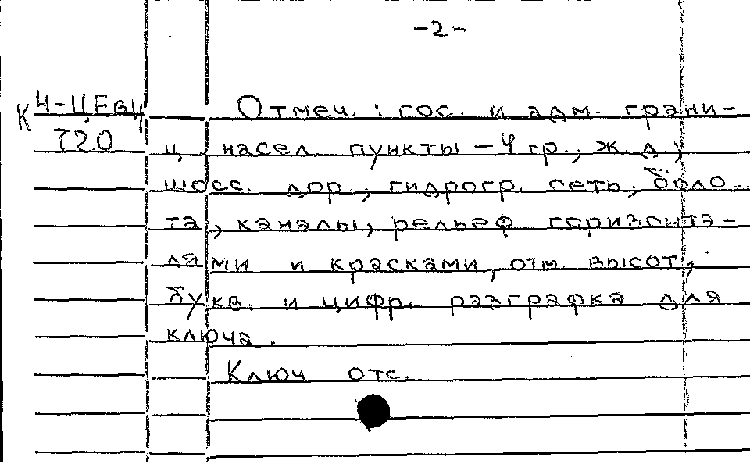 -2-
К Ч-Ц.Евц
720
Отмеч.: гос. и адм. грани-
ц, насел. пункты - 4 гр., ж. д.,
шосс. дор., гидрогр. сеть, боло-
та, каналы, рельеф горизонта-
лями и красками, отм. высот,
букв. и цифр. разграфка для
ключа.
Ключ отс.